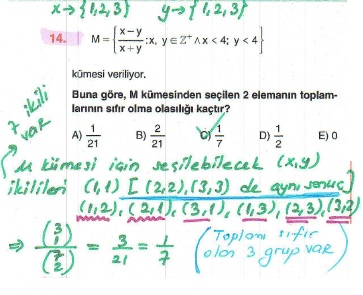 x → {1,2,3} y → {1,2,3}
14. M = { x-y / x+y : x, y ∈ Z⁺ ∧ x < 4; y < 4 }
kümesi veriliyor.
Buna göre, M kümesinden seçilen 2 elemanın toplam-
larının sıfır olma olasılığı kaçtır?
A) 1/21 B) 2/21 C) 1/7 D) 1/2 E) 0
7 ikili var
M kümesi için seçilebilecek (x,y)
ikilileri (1,1) [(2,2),(3,3) de aynı sonuç]
(1,2), (2,1), (3,1), (1,3), (2,3), (3,2)
⇒ (3 1) / (7 2) = 3/21 = 1/7 (Toplamı sıfır
olan 3 grup var)